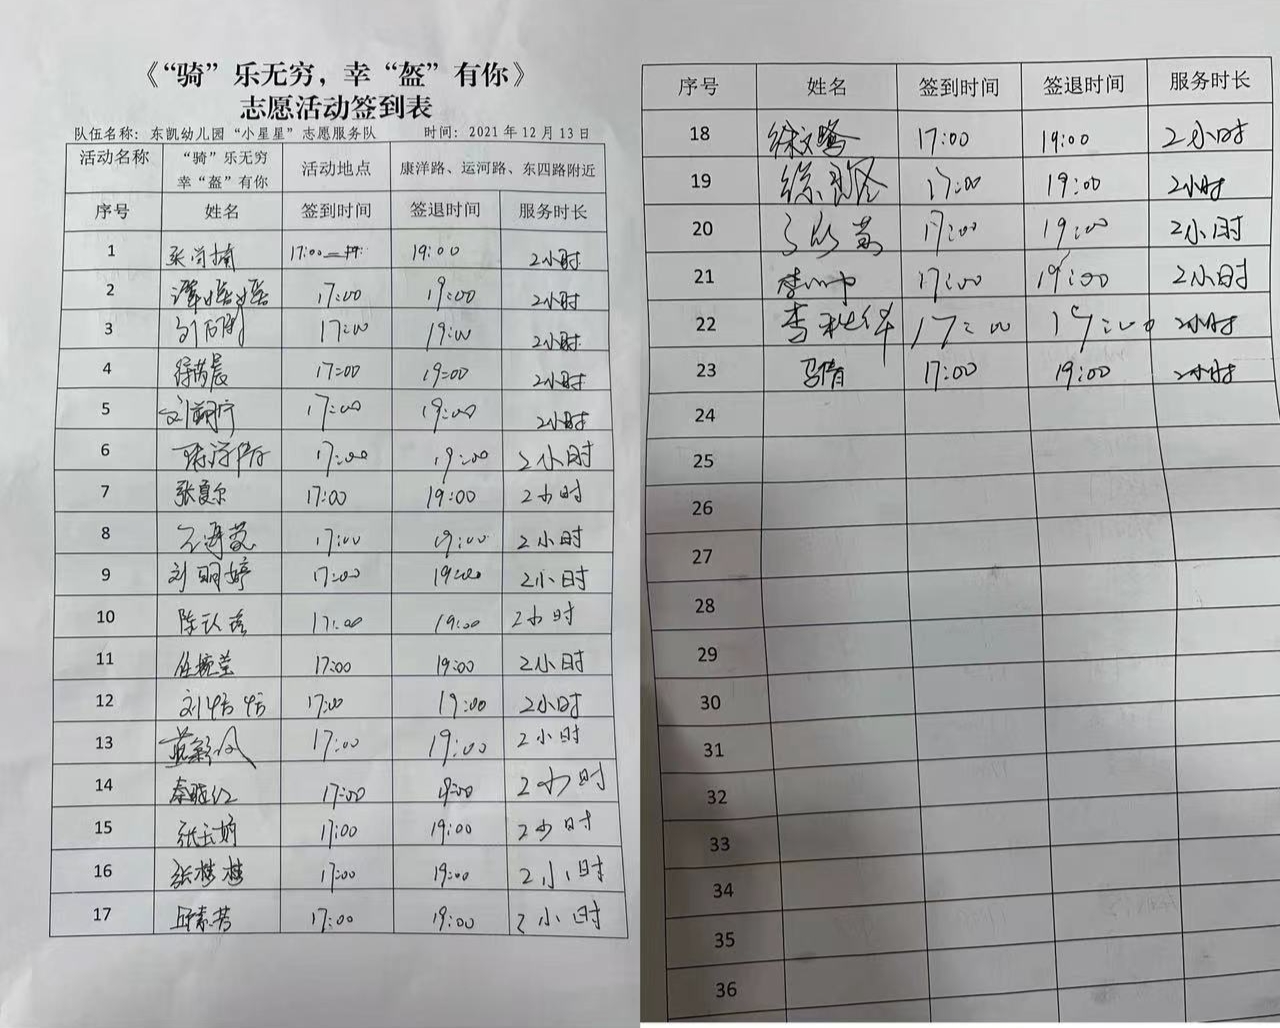 《“骑”乐无穷，幸“盔”有你》
志愿活动签到表
队伍名称：东凯幼儿园“小星星”志愿服务队 时间：2021年12月13日
活动名称 “骑”乐无穷 活动地点 康洋路、运河路、东四路附近
幸“盔”有你
序号 姓名 签到时间 签退时间 服务时长
1 17:00 19:00 2小时
2 谭媛媛 17:00 19:00 2小时
3 17:00 19:00 2小时
4 17:00 19:00 2小时
5 17:00 19:00 2小时
6 17:00 19:00 2小时
7 张夏尔 17:00 19:00 2小时
8 17:00 19:00 2小时
9 刘明婷 17:00 19:00 2小时
10 17:00 19:00 2小时
11 任婉莹 17:00 19:00 2小时
12 17:00 19:00 2小时
13 17:00 19:00 2小时
14 秦晓红 17:00 19:00 2小时
15 17:00 19:00 2小时
16 张楼楼 17:00 19:00 2小时
17 邱素芳 17:00 19:00 2小时
序号 姓名 签到时间 签退时间 服务时长
18 17:00 19:00 2小时
19 17:00 19:00 2小时
20 17:00 19:00 2小时
21 17:00 19:00 2小时
22 17:00 19:00 2小时
23 马倩 17:00 19:00 2小时
24
25
26
27
28
29
30
31
32
33
34
35
36